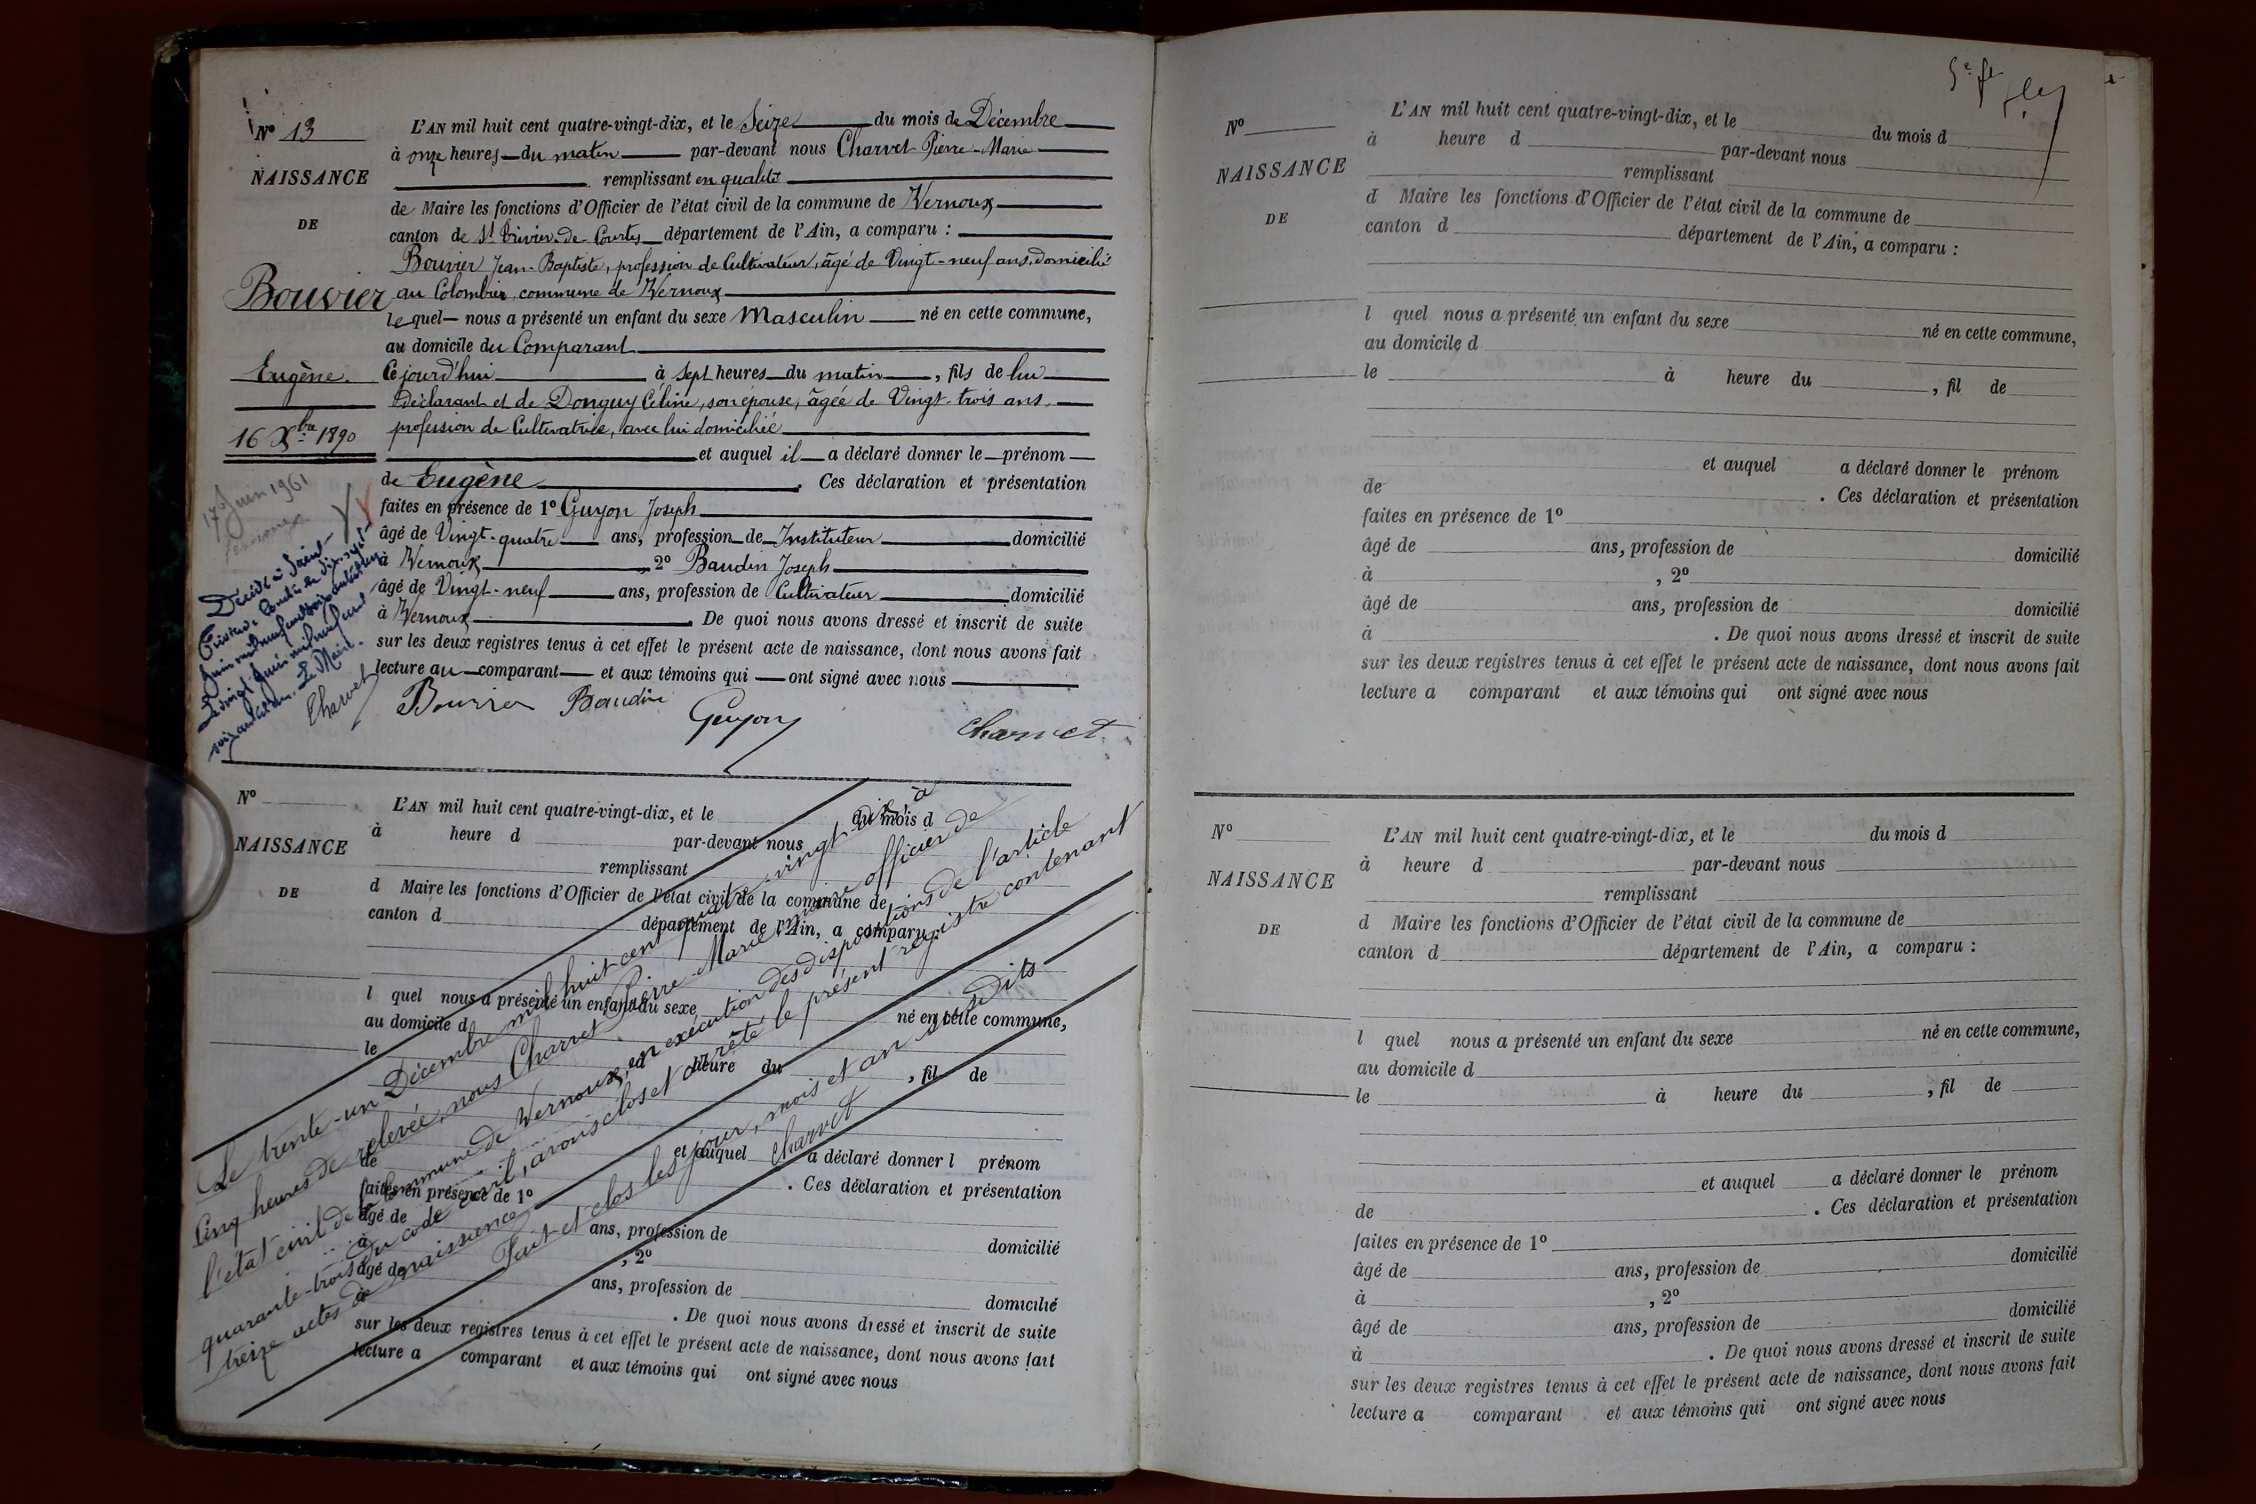 N° 13
NAISSANCE
DE
Bouvier
Eugène.
16 Xbre 1890
17 Juin 1961
Vernoux
Décédé à Saint-
Trivier-de-Courtes le dix-sept
Juin mil neuf cent soixante et un
Le vingt Juin mil neuf cent
soixante et un. Le Maire.
Charvet
L'AN mil huit cent quatre-vingt-dix, et le Seize du mois de Décembre
à onze heures du matin par-devant nous Charvet Pierre-Marie
remplissant en qualité
de Maire les fonctions d'Officier de l'état civil de la commune de Vernoux
canton de St Trivier-de-Courtes département de l'Ain, a comparu :
Bouvier Jean-Baptiste, profession de Cultivateur, âgé de Vingt-neuf ans, domicilié
au Colombier, commune de Vernoux
le quel nous a présenté un enfant du sexe Masculin né en cette commune,
au domicile du Comparant
Cejourd'hui à sept heures du matin, fils de lui
déclarant et de Donguy Céline, son épouse, âgée de Vingt-trois ans,
profession de Cultivatrice, avec lui domiciliée
et auquel il a déclaré donner le prénom
de Eugène. Ces déclaration et présentation
faites en présence de 1° Guyon Joseph
âgé de Vingt-quatre ans, profession de Instituteur domicilié
à Vernoux, 2° Baudin Joseph
âgé de Vingt-neuf ans, profession de Cultivateur domicilié
à Vernoux. De quoi nous avons dressé et inscrit de suite
sur les deux registres tenus à cet effet le présent acte de naissance, dont nous avons fait
lecture au comparant et aux témoins qui ont signé avec nous
Bouvier Baudin Guyon Charvet
N°
NAISSANCE
DE
L'AN mil huit cent quatre-vingt-dix, et le du mois d
à heure d par-devant nous
remplissant
d Maire les fonctions d'Officier de l'état civil de la commune de
canton d département de l'Ain, a comparu :
l quel nous a présenté un enfant du sexe né en cette commune,
au domicile d
le à heure du , fil de
et auquel a déclaré donner l prénom
de . Ces déclaration et présentation
faites en présence de 1°
âgé de ans, profession de domicilié
à , 2°
âgé de ans, profession de domicilié
à . De quoi nous avons dressé et inscrit de suite
sur les deux registres tenus à cet effet le présent acte de naissance, dont nous avons fait
lecture a comparant et aux témoins qui ont signé avec nous
Le trente-un Décembre mil huit cent quatre-vingt-dix à
Cinq heures de relevée, nous Charvet Pierre-Marie Maire officier de
l'état civil de la commune de Vernoux, en exécution des dispositions de l'article
quarante-trois du code civil, avons clos et arrêté le présent registre contenant
treize actes de naissance
Fait et clos les jour, mois et an susdits
Charvet
N°
NAISSANCE
DE
L'AN mil huit cent quatre-vingt-dix, et le du mois d
à heure d par-devant nous
remplissant
d Maire les fonctions d'Officier de l'état civil de la commune de
canton d département de l'Ain, a comparu :
l quel nous a présenté un enfant du sexe né en cette commune,
au domicile d
le à heure du , fil de
et auquel a déclaré donner le prénom
de . Ces déclaration et présentation
faites en présence de 1°
âgé de ans, profession de domicilié
à , 2°
âgé de ans, profession de domicilié
à . De quoi nous avons dressé et inscrit de suite
sur les deux registres tenus à cet effet le présent acte de naissance, dont nous avons fait
lecture a comparant et aux témoins qui ont signé avec nous
N°
NAISSANCE
DE
L'AN mil huit cent quatre-vingt-dix, et le du mois d
à heure d par-devant nous
remplissant
d Maire les fonctions d'Officier de l'état civil de la commune de
canton d département de l'Ain, a comparu :
l quel nous a présenté un enfant du sexe né en cette commune,
au domicile d
le à heure du , fil de
et auquel a déclaré donner le prénom
de . Ces déclaration et présentation
faites en présence de 1°
âgé de ans, profession de domicilié
à , 2°
âgé de ans, profession de domicilié
à . De quoi nous avons dressé et inscrit de suite
sur les deux registres tenus à cet effet le présent acte de naissance, dont nous avons fait
lecture a comparant et aux témoins qui ont signé avec nous